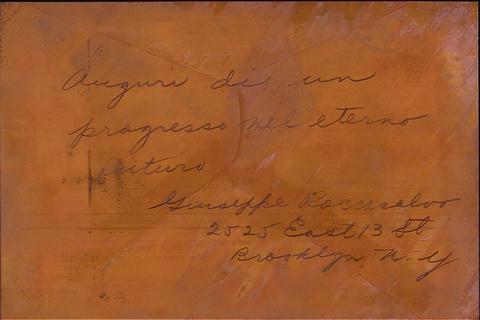 Auguri di un
progresso nel eterno
futuro
Giuseppe Roccasalvo
2525 East 13 St
Brooklyn N-Y